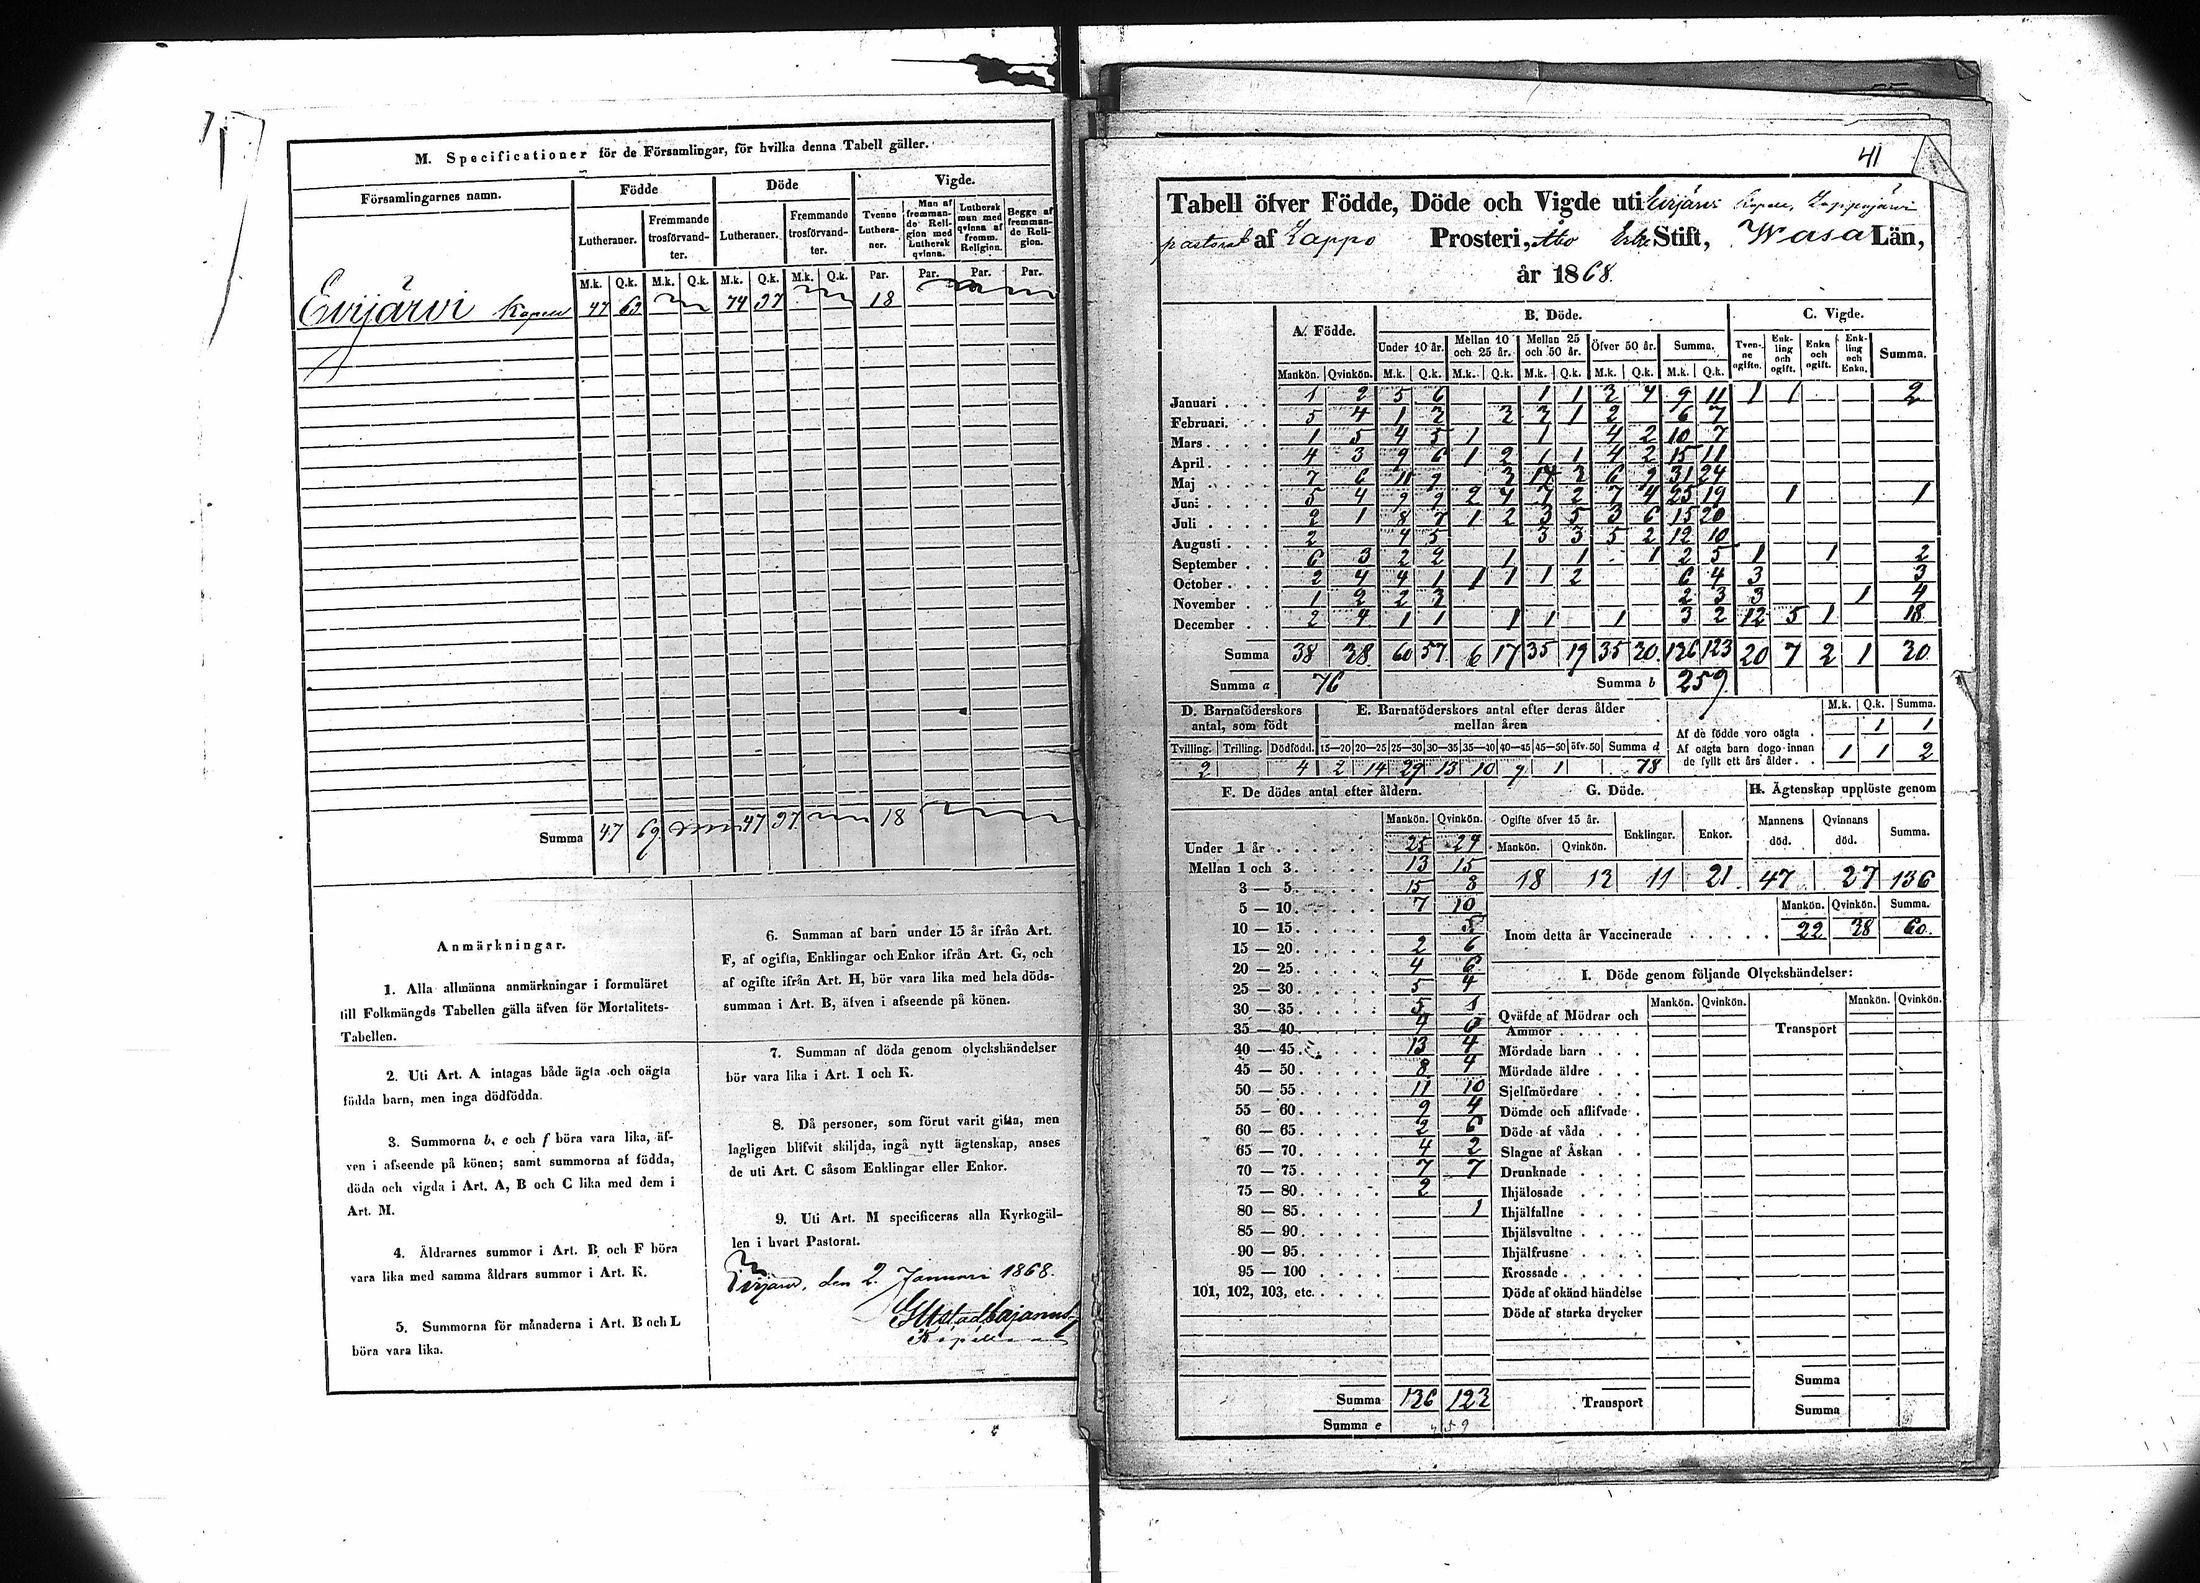 M. Specificationer för de Församlingar, för hvilka denna Tabell gäller.
Församlingarnes namn. Födde Döde Vigde.
Lutheraner. Fremmande trosförvandter. Lutheraner. Fremmande trosförvandter. Tvenne Lutheraner. Man af fremmande Religion med Luthersk qvinna. Luthersk man med qvinna af fremm. Religion. Begge af fremmande Religion.
M.k. Q.k. M.k. Q.k. M.k. Q.k. M.k. Q.k. Par. Par. Par. Par.
Evijärvi Kapell 47 69 74 97 18
Summa 47 69 47 97 18
Anmärkningar.
1. Alla allmänna anmärkningar i formuläret
till Folkmängds Tabellen gälla äfven för Mortalitets-
Tabellen.
2. Uti Art. A intagas både ägta och oägta
födda barn, men inga dödfödda.
3. Summorna b, e och f böra vara lika, äf-
ven i afseende på könen; samt summorna af födda,
döda och vigda i Art. A, B och C lika med dem i
Art. M.
4. Åldrarnes summor i Art. B och F böra
vara lika med samma åldrars summor i Art. K.
5. Summorna för månaderna i Art. B och L
böra vara lika.
6. Summan af barn under 15 år ifrån Art.
F, af ogifta, Enklingar och Enkor ifrån Art. G, och
af ogifte ifrån Art. H, bör vara lika med hela döds-
summan i Art. B, äfven i afseende på könen.
7. Summan af döda genom olyckshändelser
bör vara lika i Art. I och K.
8. Då personer, som förut varit gifta, men
lagligen blifvit skiljda, ingå nytt ägtenskap, anses
de uti Art. C såsom Enklingar eller Enkor.
9. Uti Art. M specificeras alla Kyrkogäl-
len i hvart Pastorat.
Evijärvi, den 2. Januari 1868.
41
Tabell öfver Födde, Döde och Vigde uti Evijärvi Kapell, Lappajärvi
pastorat af Lappo Prosteri, Åbo Erke Stift, Wasa Län,
år 1868.
A. Födde. B. Döde. C. Vigde.
Under 10 år. Mellan 10 och 25 år. Mellan 25 och 50 år. Öfver 50 år. Summa. Tvenne ogifte. Enkling och ogift. Enka och ogift. Enkling och Enka. Summa.
Mankön. Qvinkön. M.k. Q.k. M.k. Q.k. M.k. Q.k. M.k. Q.k. M.k. Q.k.
Januari . . . 1 2 5 6 1 1 3 4 9 11 1 1 2
Februari. . . 5 4 1 3 3 3 1 2 6 7
Mars . . . . 1 5 4 5 1 1 4 2 10 7
April . . . . 4 3 9 6 1 2 1 1 4 2 15 11
Maj . . . . 7 6 11 9 3 14 3 6 9 31 24
Juni . . . . 5 4 9 9 2 4 7 2 7 4 25 19 1 1
Juli . . . . 2 1 8 7 1 2 3 5 3 6 15 20
Augusti . . . 2 4 5 3 3 5 2 12 10
September . . 6 3 2 2 1 1 1 2 5 1 1 2
October . . . 2 4 4 1 1 1 1 2 6 4 3 3
November . . 1 2 2 3 2 3 3 1 4
December . . 2 4 1 1 1 1 1 3 2 12 5 1 18
Summa 38 38 60 57 6 17 35 19 35 30 136 123 20 7 2 1 30
Summa a 76 Summa b 259
D. Barnaföderskors antal, som födt E. Barnaföderskors antal efter deras ålder mellan åren M.k. Q.k. Summa.
Tvilling. Trilling. Dödfödd. 15—20 20—25 25—30 30—35 35—40 40—45 45—50 öfv. 50 Summa d
2 4 2 14 29 13 10 9 1 78
Af de födde voro oägta . 1 1
Af oägta barn dogo innan
de fyllt ett års ålder . . 1 1 2
F. De dödes antal efter åldern.
Mankön. Qvinkön.
Under 1 år . . . . 25 24
Mellan 1 och 3. . . . 13 15
3 — 5 . . . . 15 8
5 — 10. . . . 7 10
10 — 15. . . . 5
15 — 20. . . . 2 6
20 — 25. . . . 4 6
25 — 30. . . . 5 4
30 — 35. . . . 5 1
35 — 40. . . . 4 6
40 — 45. . . . 13 4
45 — 50. . . . 8 4
50 — 55. . . . 11 10
55 — 60. . . . 9 4
60 — 65. . . . 2 6
65 — 70. . . . 4 2
70 — 75. . . . 7 7
75 — 80. . . . 2
80 — 85. . . . 1
85 — 90. . . .
90 — 95. . . .
95 — 100 . . . .
101, 102, 103, etc. . . . .
Summa 136 123
Summa e 259
G. Döde. H. Ägtenskap upplöste genom
Ogifte öfver 15 år. Enklingar. Enkor. Mannens död. Qvinnans död. Summa.
Mankön. Qvinkön.
18 13 11 21 47 27 136
Mankön. Qvinkön. Summa.
Inom detta år Vaccinerade . . . . . 22 38 60.
I. Döde genom följande Olyckshändelser:
Mankön. Qvinkön. Mankön. Qvinkön.
Qväfde af Mödrar och
Ammor . . . . . Transport
Mördade barn . . .
Mördade äldre . . .
Sjelfmördare . . .
Dömde och aflifvade .
Döde af våda . . .
Slagne af Åskan . .
Drunknade . . . .
Ihjälosade . . . .
Ihjälfallne . . . .
Ihjälsvultne . . . .
Ihjälfrusne . . . .
Krossade . . . . .
Döde af okänd händelse
Döde af starka drycker
Summa
Transport Summa